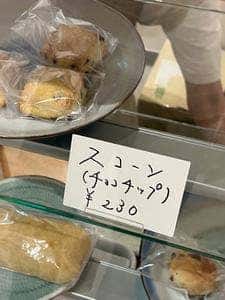 スコーン
(チョコチップ)
¥230